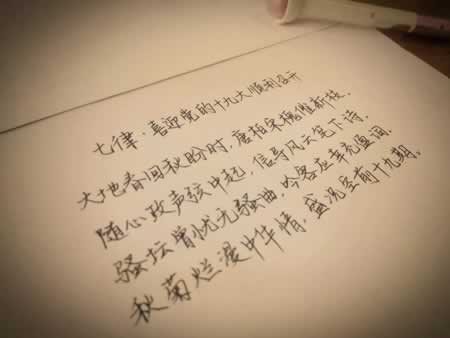 七律·喜迎党的十九大顺利召开
大地春回秋盼时,唐柏宋槐催新枝。
随心政声弦中起,信导风云笔下诗。
骚坛曾忧无骚曲,吟客应幸充盈词。
秋菊烂漫中华情,盛况空前十九期。